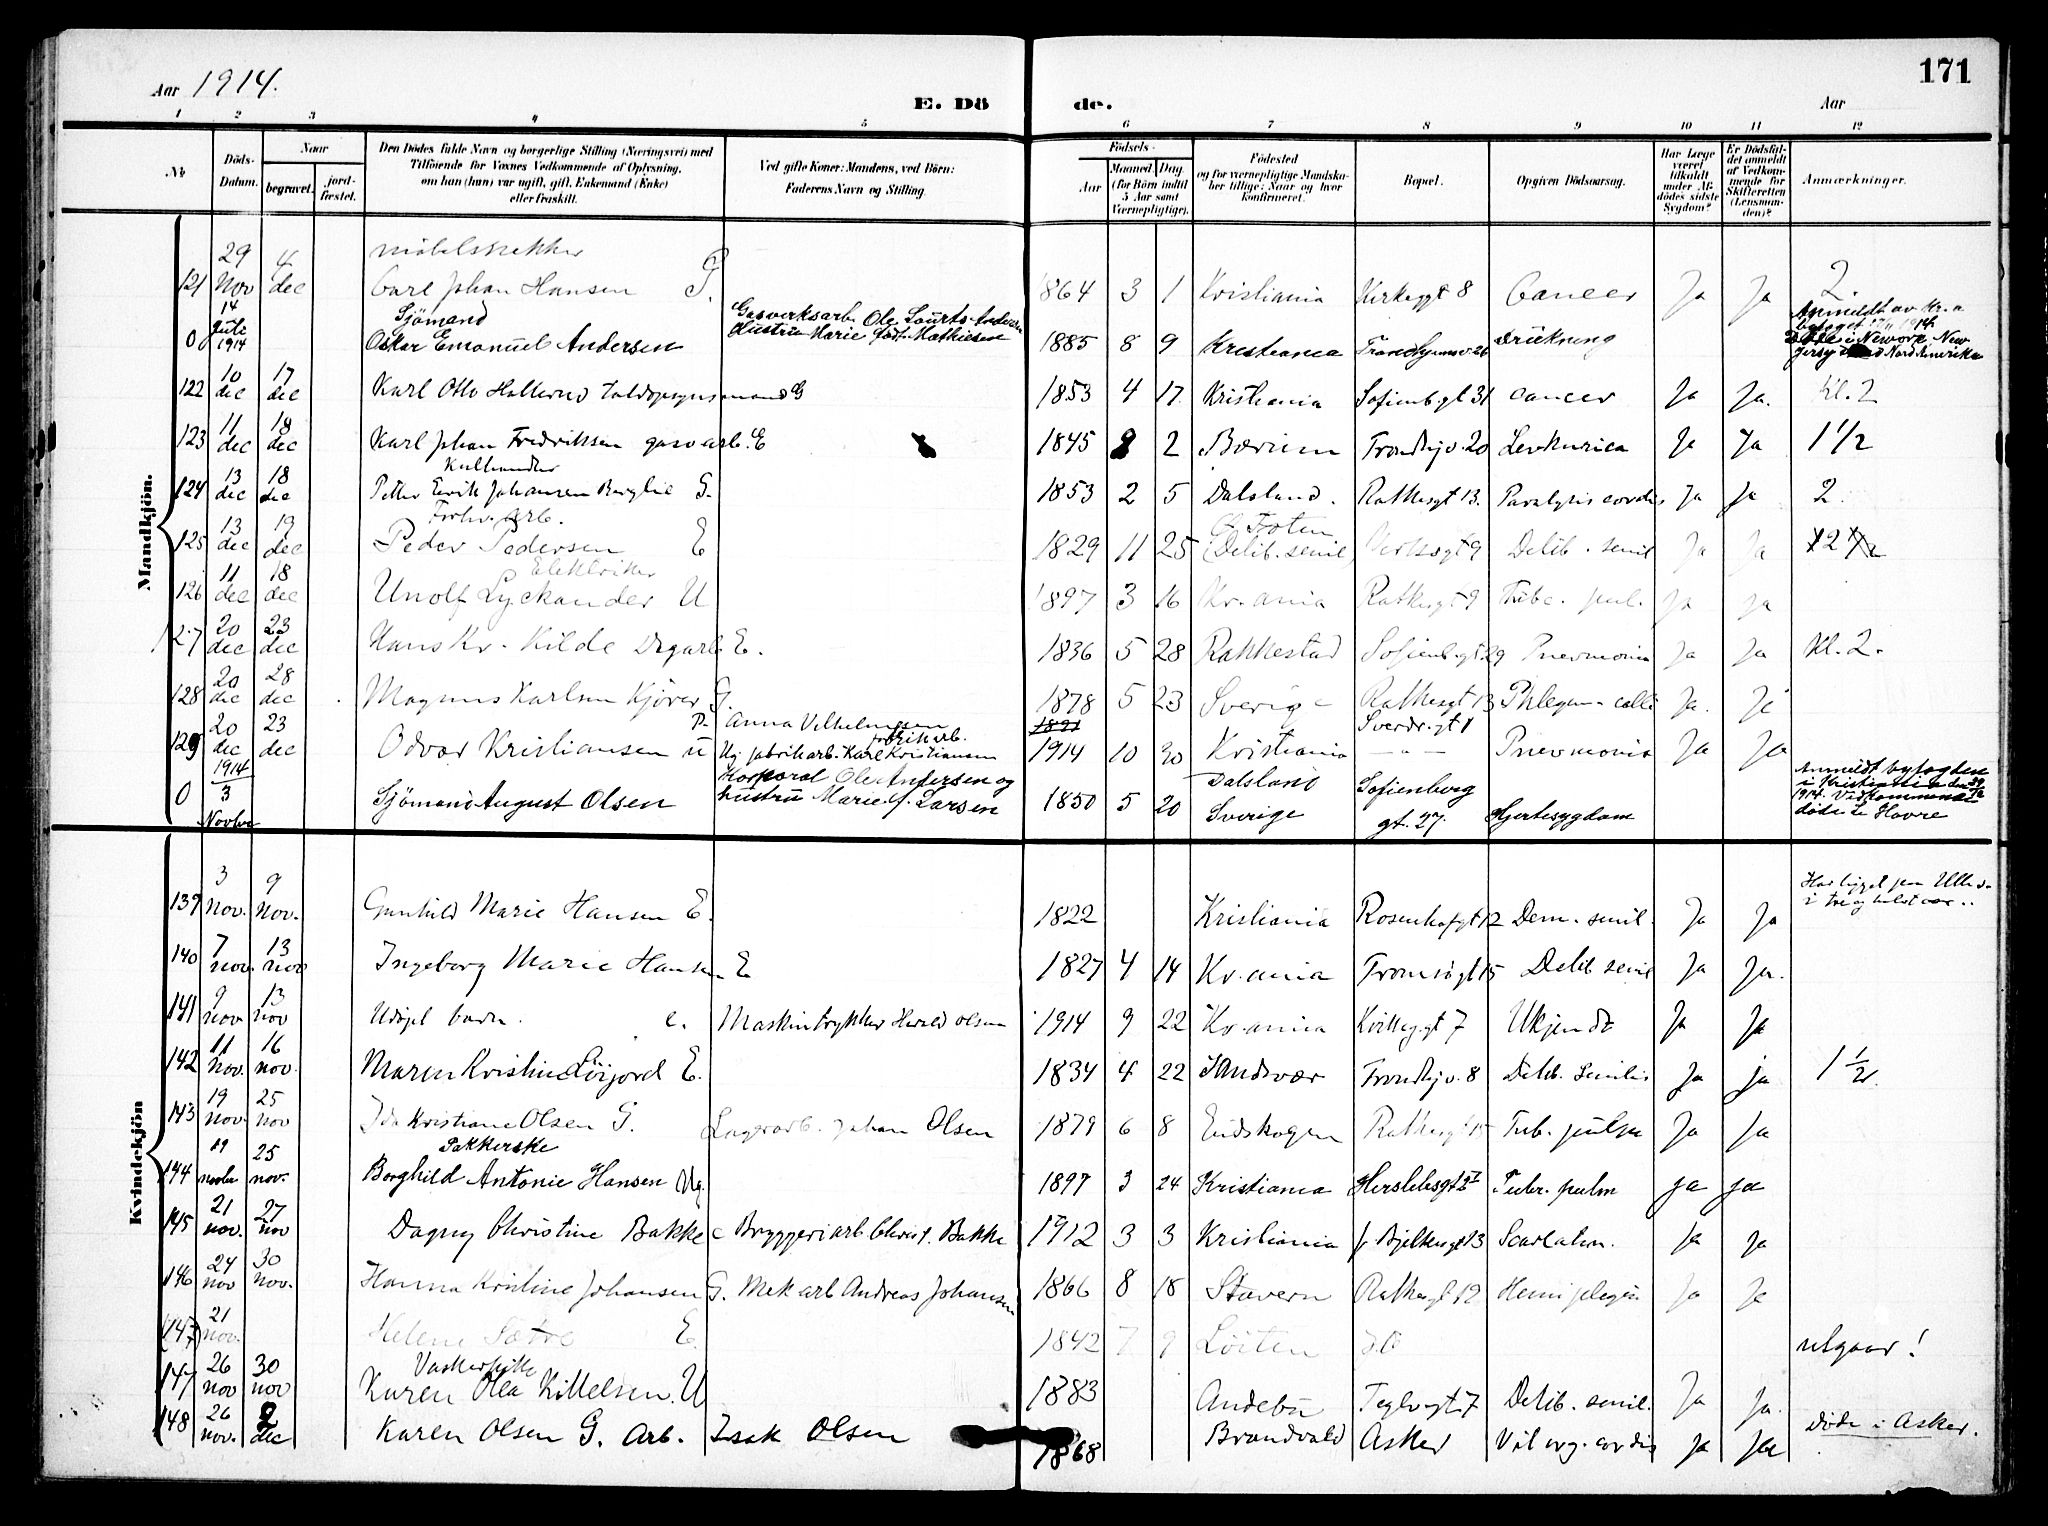 Aar 1914.
E. Döde.
Aar
171
1 2 3 4 5 6 7 8 9 10 11 12
No
Döds-Datum.
Naar
begravet.
jord-fæstet.
Den Dödes fulde Navn og borgerlige Stilling (Næringsvei) med
Tilföiende for Voxnes Vedkommende af Oplysning,
om han (hun) var ugift, gift, Enkemand (Enke)
eller fraskilt.
Ved gifte Koner: Mandens, ved Börn:
Faderens Navn og Stilling.
Födsels-
Aar
Maaned Dag.
(for Börn indtil
5 Aar samt
Værnepligtige).
Födested
og for værnepligtige Mandska-
ber tillige: Naar og hvor
konfirmeret.
Bopæl.
Opgiven Dödsaarsag.
Har Læge
været
tilkaldt
under Af-
dödes sidste
Sygdom?
Er Dödsfal-
det anmeldt
af Vedkom-
mende for
Skifteretten
(Lensman-
den)?
Anmærkninger.
Mandkjön.
121 29 Nov 4 dec Carl Johan Hansen G. 1864 3 1 Kristiania Kirkegt 8 Cancer Ja Ja 2.
0 14 Juli 1914 Sjömand Oskar Emanuel Andersen Gasverksarb. Ole Lauritz Andersen Hustru Marie födt Mathiesen 1885 8 9 Kristiania Drukning
122 10 dec 17 dec Karl Otto 1853 4 17 Kristiania Sofienb.gt 31 Cancer Ja Ja. Kl. 2
123 11 dec 18 dec Karl Johan Fredriksen gasv arb. E 1845 8 2 Bærum Trondhjv. 20 Ja Ja 1 1/2
124 13 dec 18 dec Kulhandler Petter Eerik Johansen G. 1853 2 5 Dalsland. Rathkesgt 13. Paralysis cordis Ja Ja 2.
125 13 dec 19 dec Peder Pedersen E 1829 11 25 Ö. Toten Debil. senil Ja Ja
126 11 dec 18 dec Elektriker Unolf Lyckander U 1897 3 16 Kr.ania Rathkesgt 9 Tube. pul. Ja Ja
127 20 dec 23 dec Hans Kr. Kilde E. 1836 5 28 Rakkestad Sofienb.gt. 29 Pnevmonia Ja Ja Kl. 2.
128 20 dec 28 dec Magnus Karlsen G. 1878 5 23 Sverige Rathkesgt 13 Phlegm. colli Ja. Ja
129 20 dec 23 dec Odvar Kristiansen u P. Anna Vilhelmsen fabrikarb. Ug fabrikarb. Karl Kristiansen 1891 1914 10 30 Kristiania Sverdr.gt 1 - " - Pnevmonia Ja Ja
0 1914 3 Novbr Sjömand August Olsen Korporal Ole Andersen og hustru Marie f. Larsen 1850 5 20 Dalsland Sverige Sofienberg gt. 27. Hjertesygdom döde i Havre
Kvindekjön
139 3 Nov. 9 Nov. Gunhild Marie Hansen E. 1822 Kristiania Rosenhofgt 12 Dem. senil. Ja Ja
140 7 nov. 13 nov Ingeborg Marie Hansen E 1827 4 14 Kr.ania Tromsögt 15 Debil senil Ja Ja.
141 9 nov 13 nov Udöpt barn. e. Maskintrykker Harald Olsen 1914 9 22 Kr.ania 7 Ukjendt Ja Ja
142 11 Nov. 16 nov. Maren Kristine E. 1834 4 22 Sandsvær Trondhjv. 8 Debil. senilis Ja ja 1 1/2.
143 19 nov. 25 nov Ida Kristiane Olsen G. Lagerarb. Johan Olsen 1879 6 8 Eidskogen Rathkesgt 15 Tub. pulm Ja Ja
144 19 novbr 25 nov. Pakkerske Borghild Antonie Hansen Ug. 1897 3 24 Kristiania Herslebsgt Tuber. pulm ja ja
145 21 nov. 27 nov Dagny Christine Bakke e Bryggeriarb. Christ. Bakke 1912 3 3 Kristiania Bjelkesgt 13 Scarlatin. Ja ja
146 24 nov 30 nov. Hanna Kristine Johansen G. Mek arb Andreas Johansen 1866 8 18 Stavern Rathkesgt 12 Hemiplegia Ja Ja
(147) 21 nov. Helene Sætre E. 1842 7 9 Löiten utgaar!
147 26 nov 30 nov Vaskerpike Karen Olea Kittelsen. U 1883 Andebu Teglv.gt 7 Debil. senil. Ja Ja.
148 26 nov. 2 dec Karen Olsen G. Arb. Isak Olsen 1868 Brandvald Asker Vit. org. cordis ja ja döde i Asker.